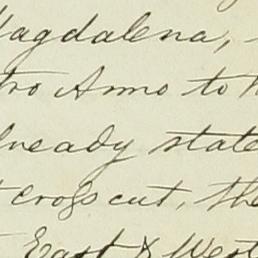 Magdalena,
tro Anno to
already state
cross cut, the
East & West